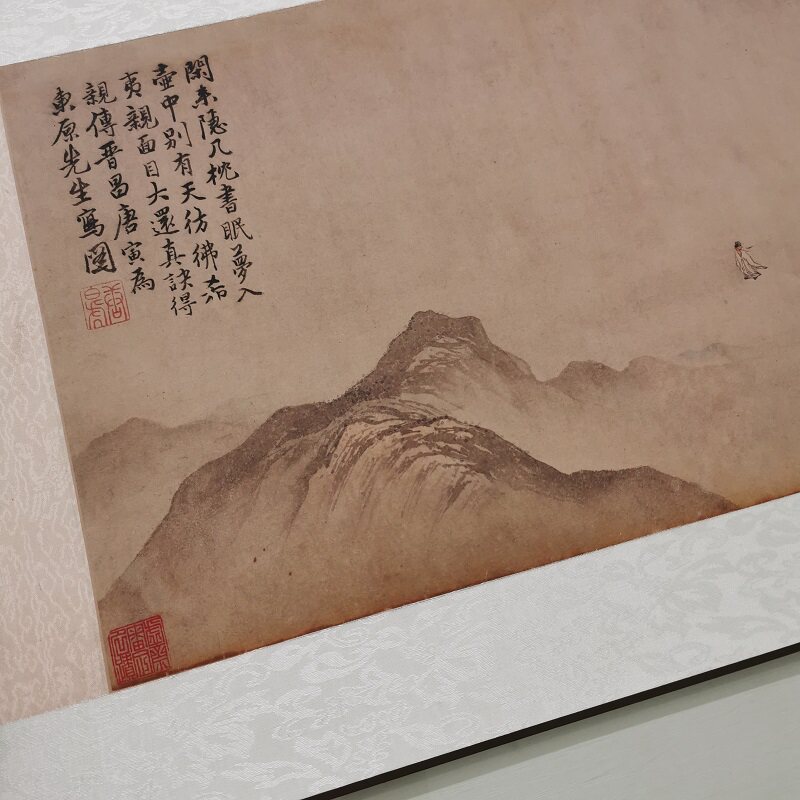 閑來隱几枕書眠夢入
壺中別有天彷彿希
夷親面目大還真訣得
親傳晉昌唐寅為
東原先生寫圖
唐白虎